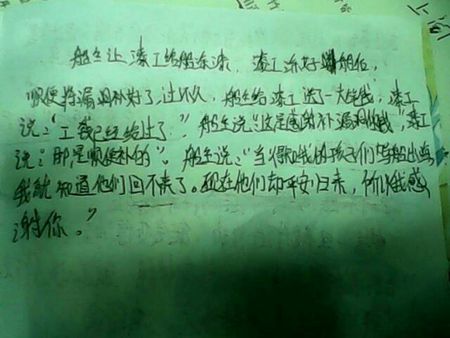 船主让漆工给船东漆，漆工漆好船后，
顺便将漏洞补好了，过不久，船主给漆工送了一大笔钱，漆工
说："工钱已经给过了"，船主说"这是感谢补漏洞的钱"，漆工
说："那是顺便补的"。船主说："当得知我的孩子们驾船出海，
我就知道他们回不来了。现在他们却平安归来，所以我感
谢你。"
上间